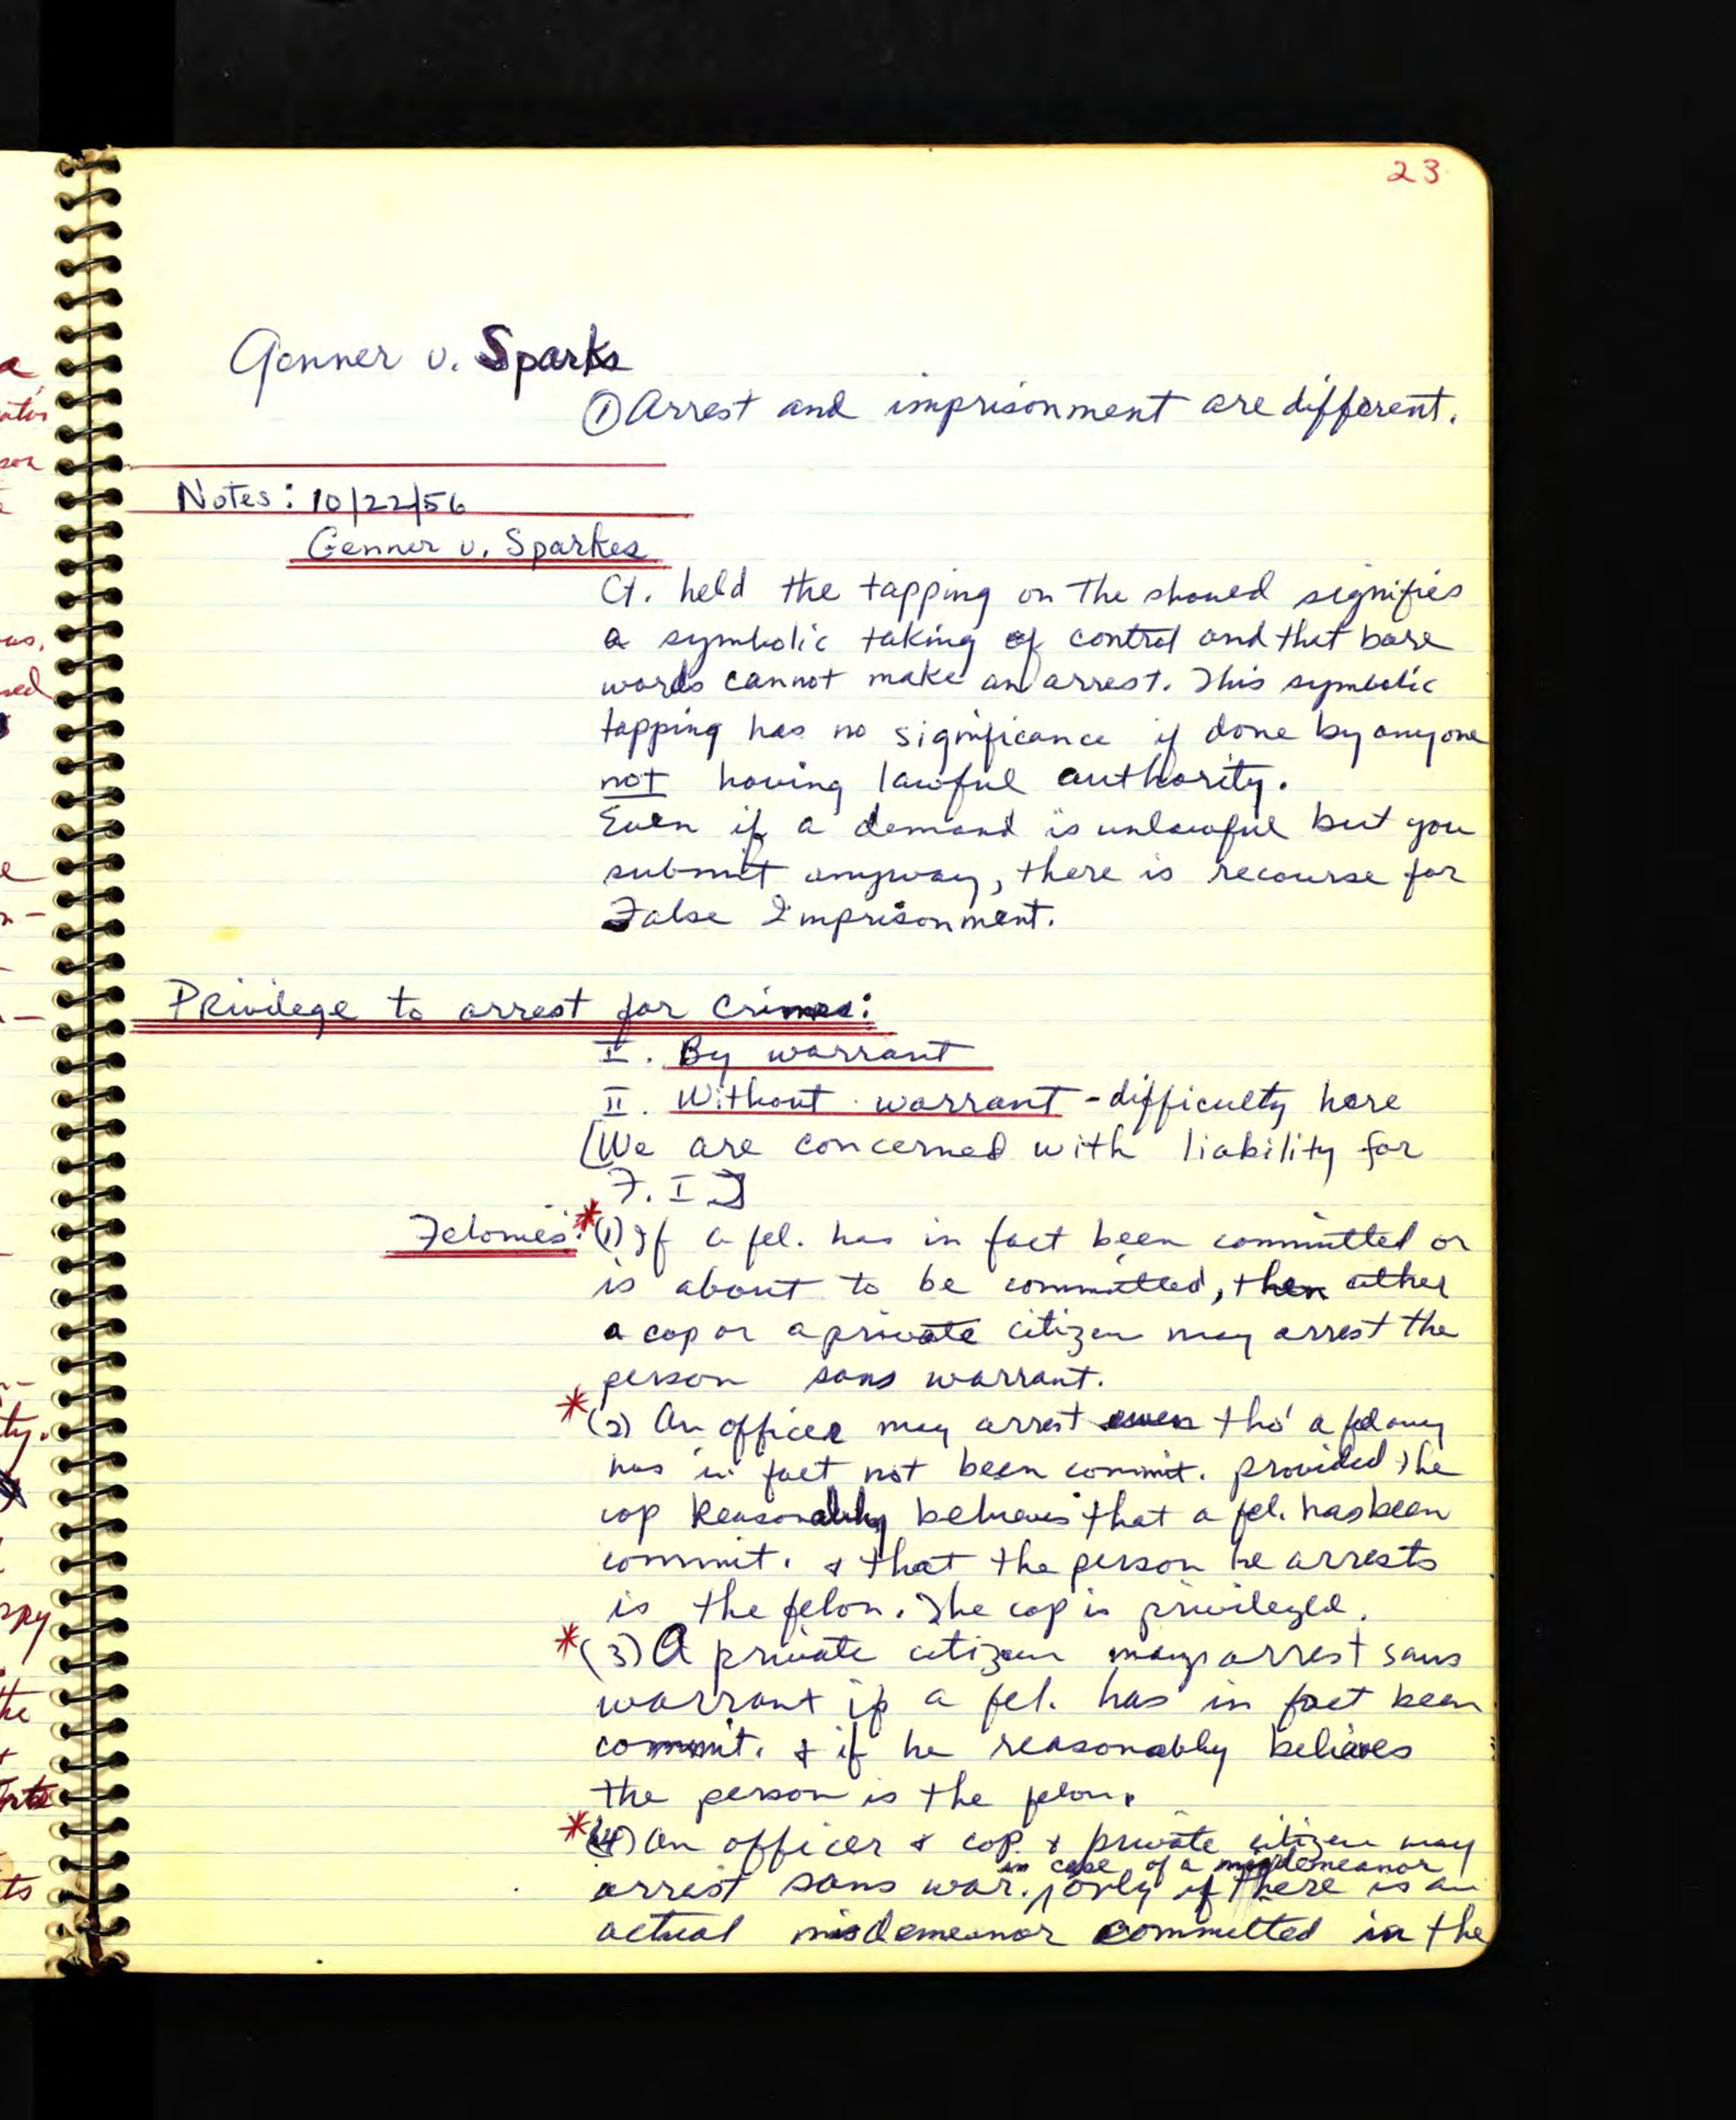 23
Genner v. Sparks
① Arrest and imprisonment are different.
Notes: 10/22/56
Genner v. Sparkes
Ct. held the tapping on the shoued signifies
a symbolic taking of control and that bare
words cannot make an arrest. This symbolic
tapping has no significance if done by anyone
not having lawful authority.
Even if a demand is unlawful but you
submit anyway, there is recourse for
False Imprisonment.
Privilege to arrest for Crimes:
I. By warrant
II. Without warrant - difficulty here
[We are concerned with liability for
F. I]
Felonies: *(1) If a fel. has in fact been committed or
is about to be committed, then either
a cop or a private citizen may arrest the
person sans warrant.
*(2) An officer may arrest even tho' a felony
has in fact not been commit. provided the
cop Reasonably believes that a fel. has been
commit. & that the person he arrests
is the felon. The cop is privileged.
*(3) A private citizen may arrest sans
warrant if a fel. has in fact been
commit. & if he reasonably believes
the person is the felon.
*(4) An officer & cop & private citizen may
in case of a misdemeanor
arrest sans war. only if there is an
actual misdemeanor committed in the